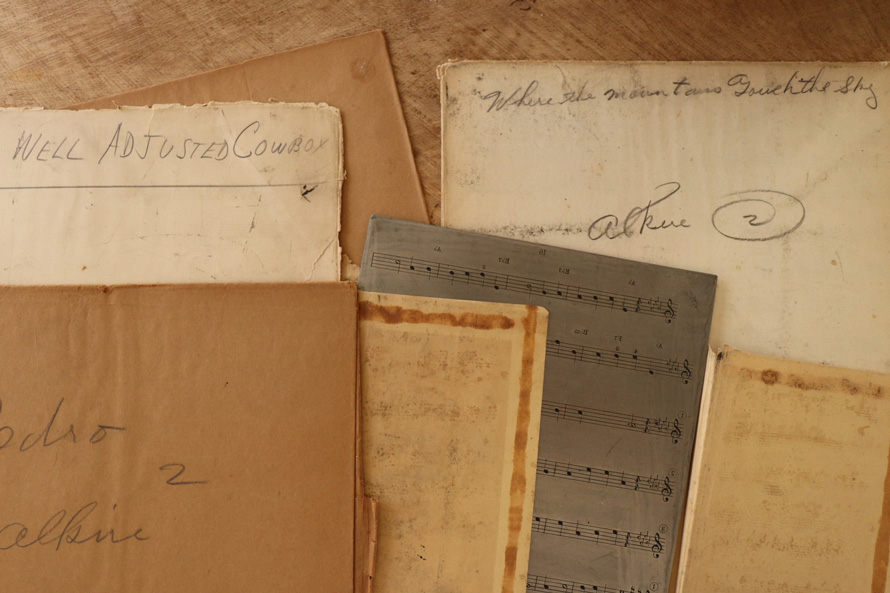 WELL ADJUSTED COWBOY
Where the mountains Touch the Sky
alkire 2
2
alkire